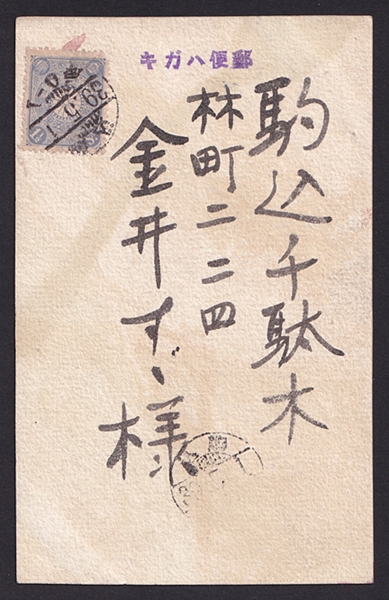 郵便ハガキ
駒込千駄木
林町二二四
金井すゞ様